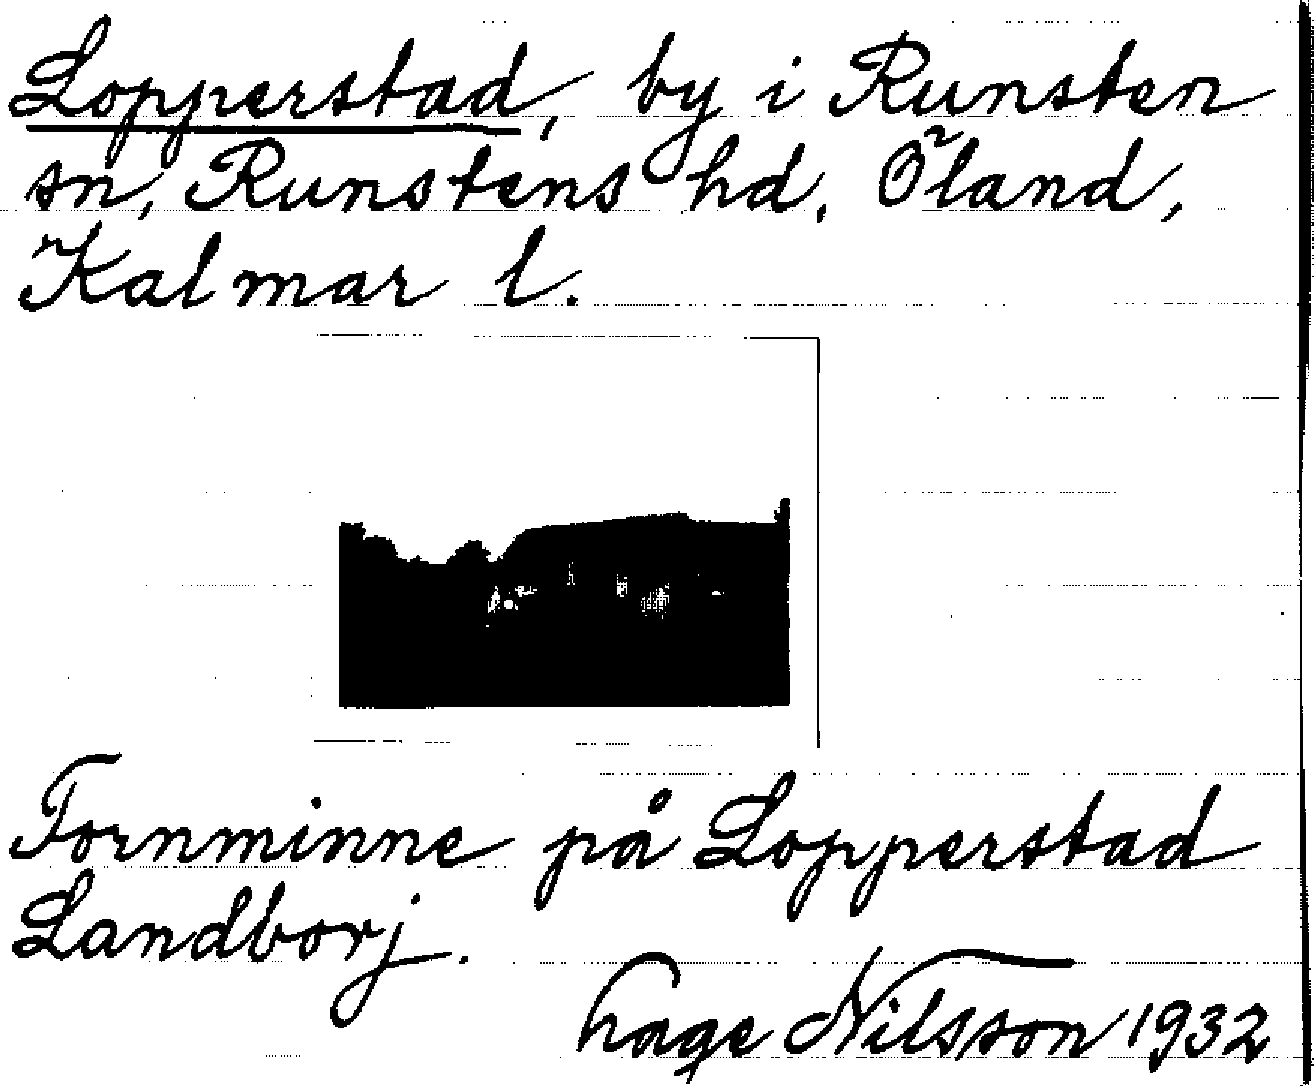 Lopperstad, by i Runsten
sn, Runstens hd, Öland,
Kalmar l.
Fornminne på Lopperstad
Landborj.
Nilsson 1932